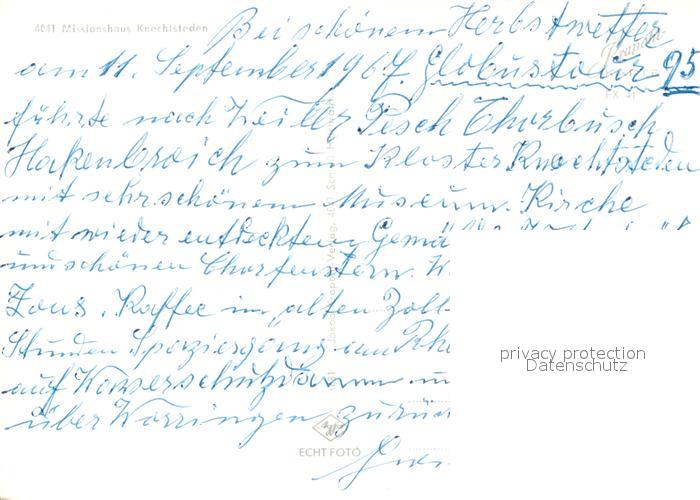 4041 Missionshaus Knechtsteden
Bei schönem Herbstwetter
am 11. September 1967. Globustour 95
führte nach Weiler Pesch Thorbusch
Hakenbroich zum Kloster Knechtsteden
mit sehr schönem Museum. Kirche
mit wieder entdeckten Gemä
und schönen Chorfenstern.
Zons. Kaffee im "alten Zoll
Stunden Spaziergang am Rhe
auf Wasserschutzdamm
über Worringen zurück
ECHT FOTO
privacy protection
Datenschutz